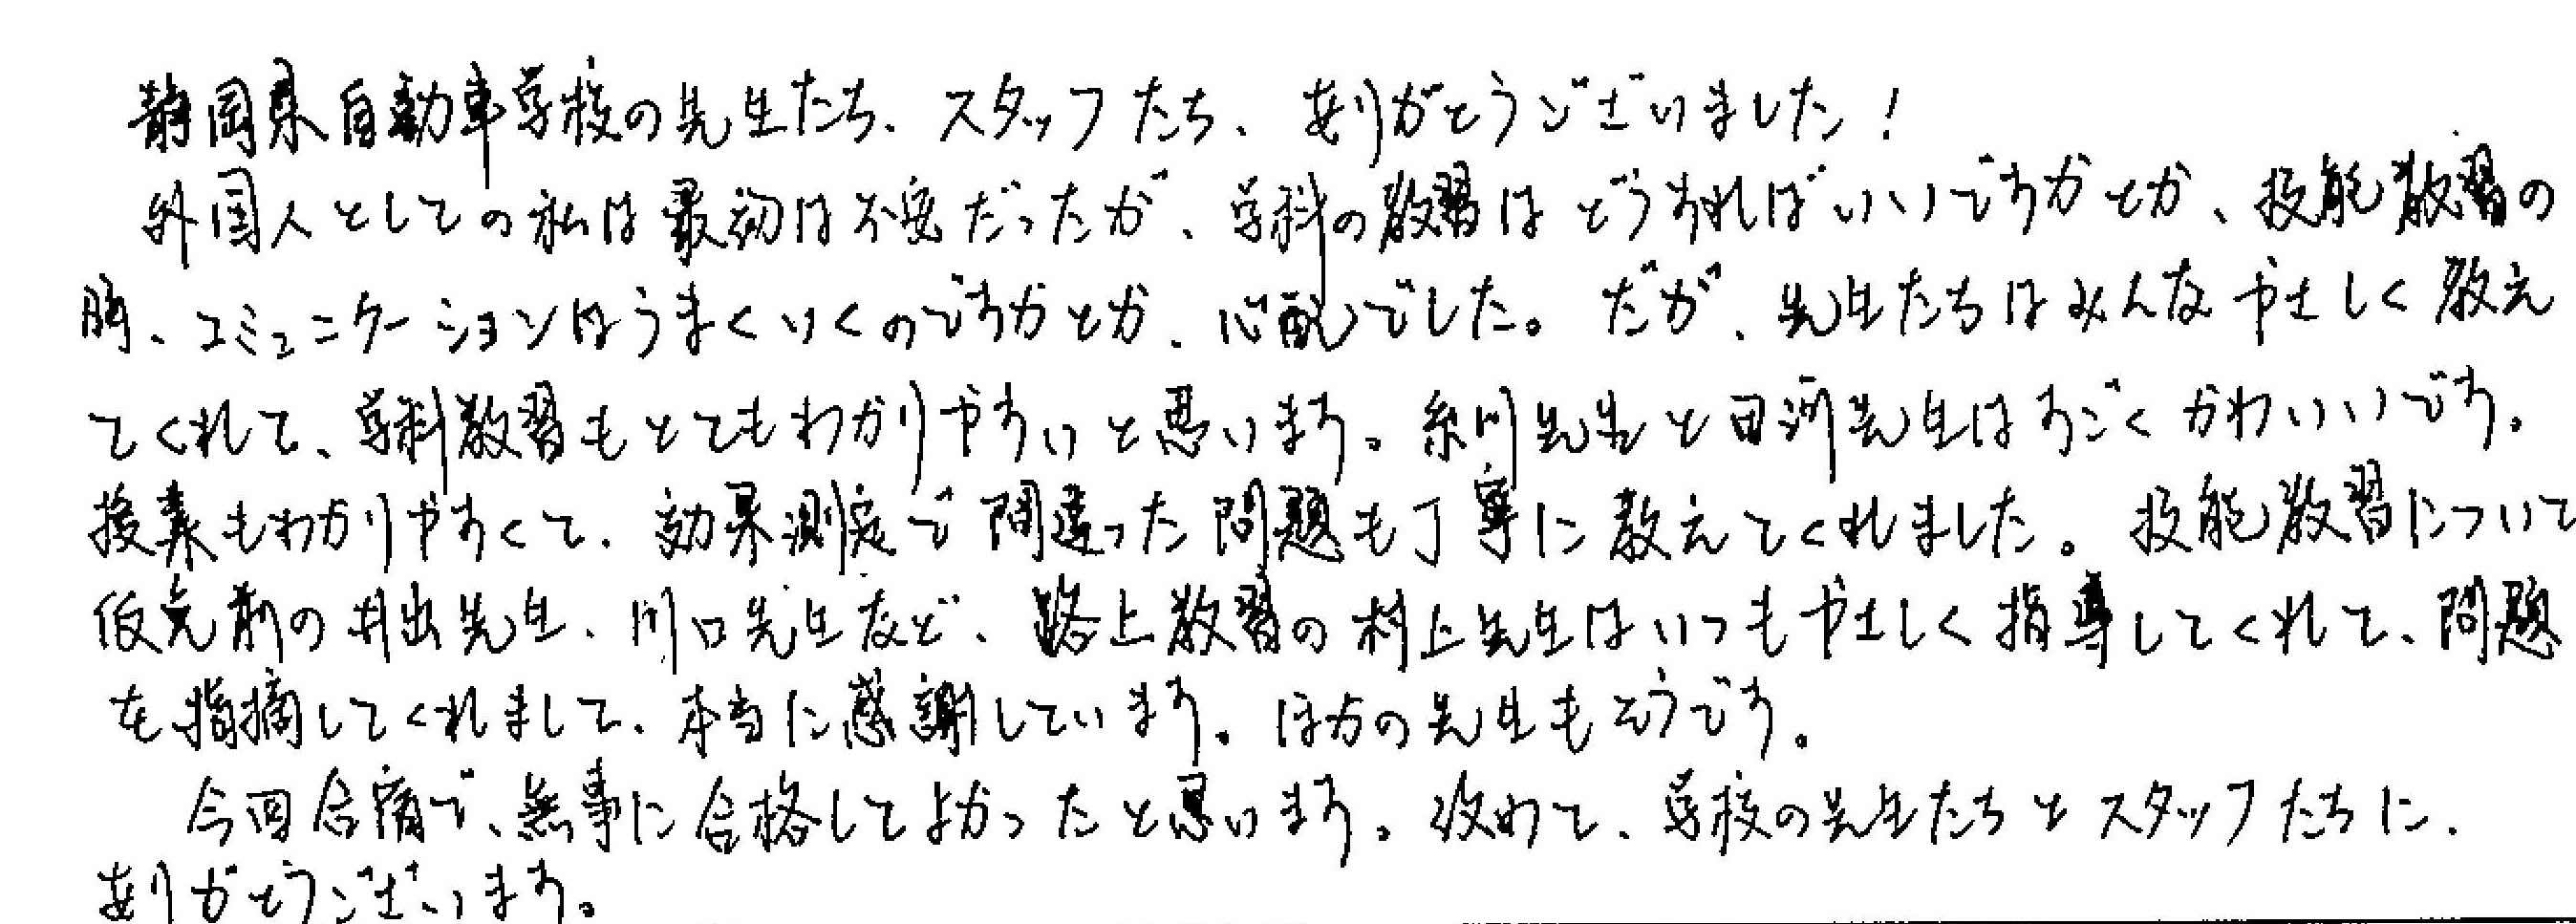 静岡県自動車学校の先生たち、スタッフたち、ありがとうございました!
外国人としての私は最初は不安だったが、学科の教習はどうすればいいですかとか、技能教習の
時、コミュニケーションはうまくいくのですかとか、心配でした。だが、先生たちはみんなやさしく教え
てくれて、学科教習もとてもわかりやすいと思います。糸川先生と田河先生はすごくかわいいです。
授業もわかりやすくて、効果測定で間違った問題も丁寧に教えてくれました。技能教習について
仮免前の井出先生、川口先生など、路上教習の村上先生はいつもやさしく指導してくれて、問題
を指摘してくれまして、本当に感謝しています。ほかの先生もそうです。
今回合宿で、無事に合格してよかったと思います。改めて、学校の先生たちとスタッフたちに、
ありがとうございます。